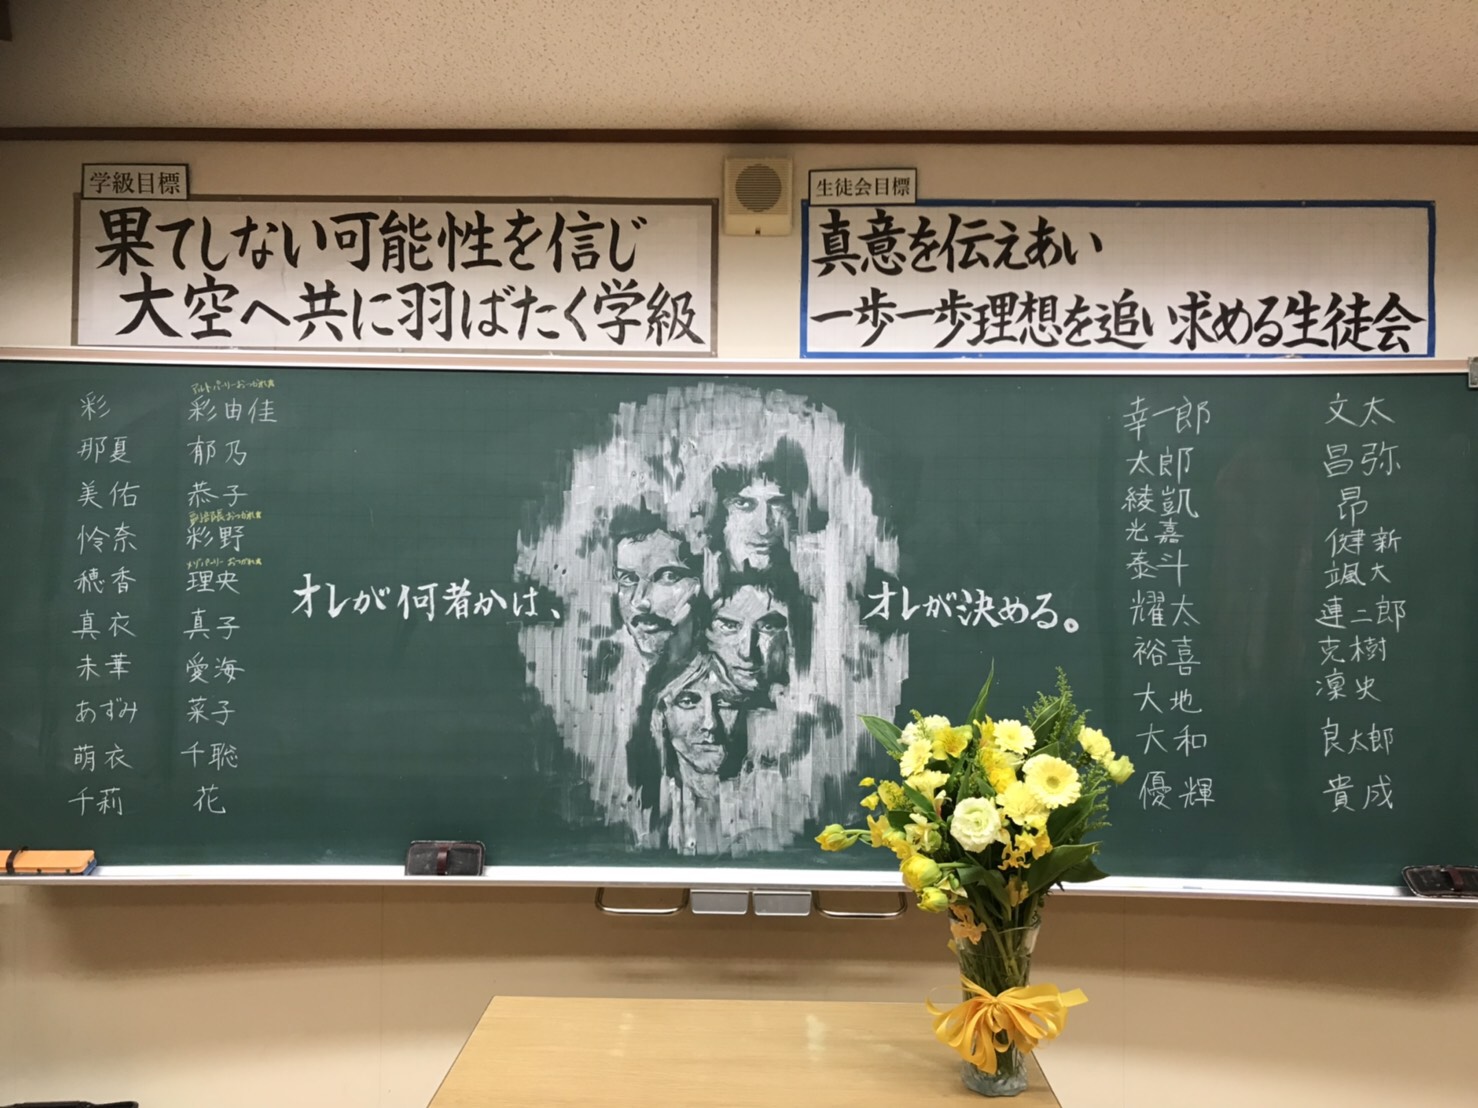 学級目標
果てしない可能性を信じ
大空へ共に羽ばたく学級
生徒会目標
真意を伝えあい
一歩一歩理想を追い求める生徒会
彩
那夏
美佑
怜奈
穂香
真衣
未華
あずみ
萌衣
千莉
アルトパートリーダーおつかれ
彩由佳
郁乃
恭子
彩野
理央
真子
愛海
菜子
千聡
花
オレが何者かは、
オレが決める。
幸一郎
太郎
綾凱
光嘉
泰斗
耀太
裕喜
大地
大和
優輝
文太
昌弥
昂
健新
颯大
連二郎
克樹
凜史
良太郎
貴成